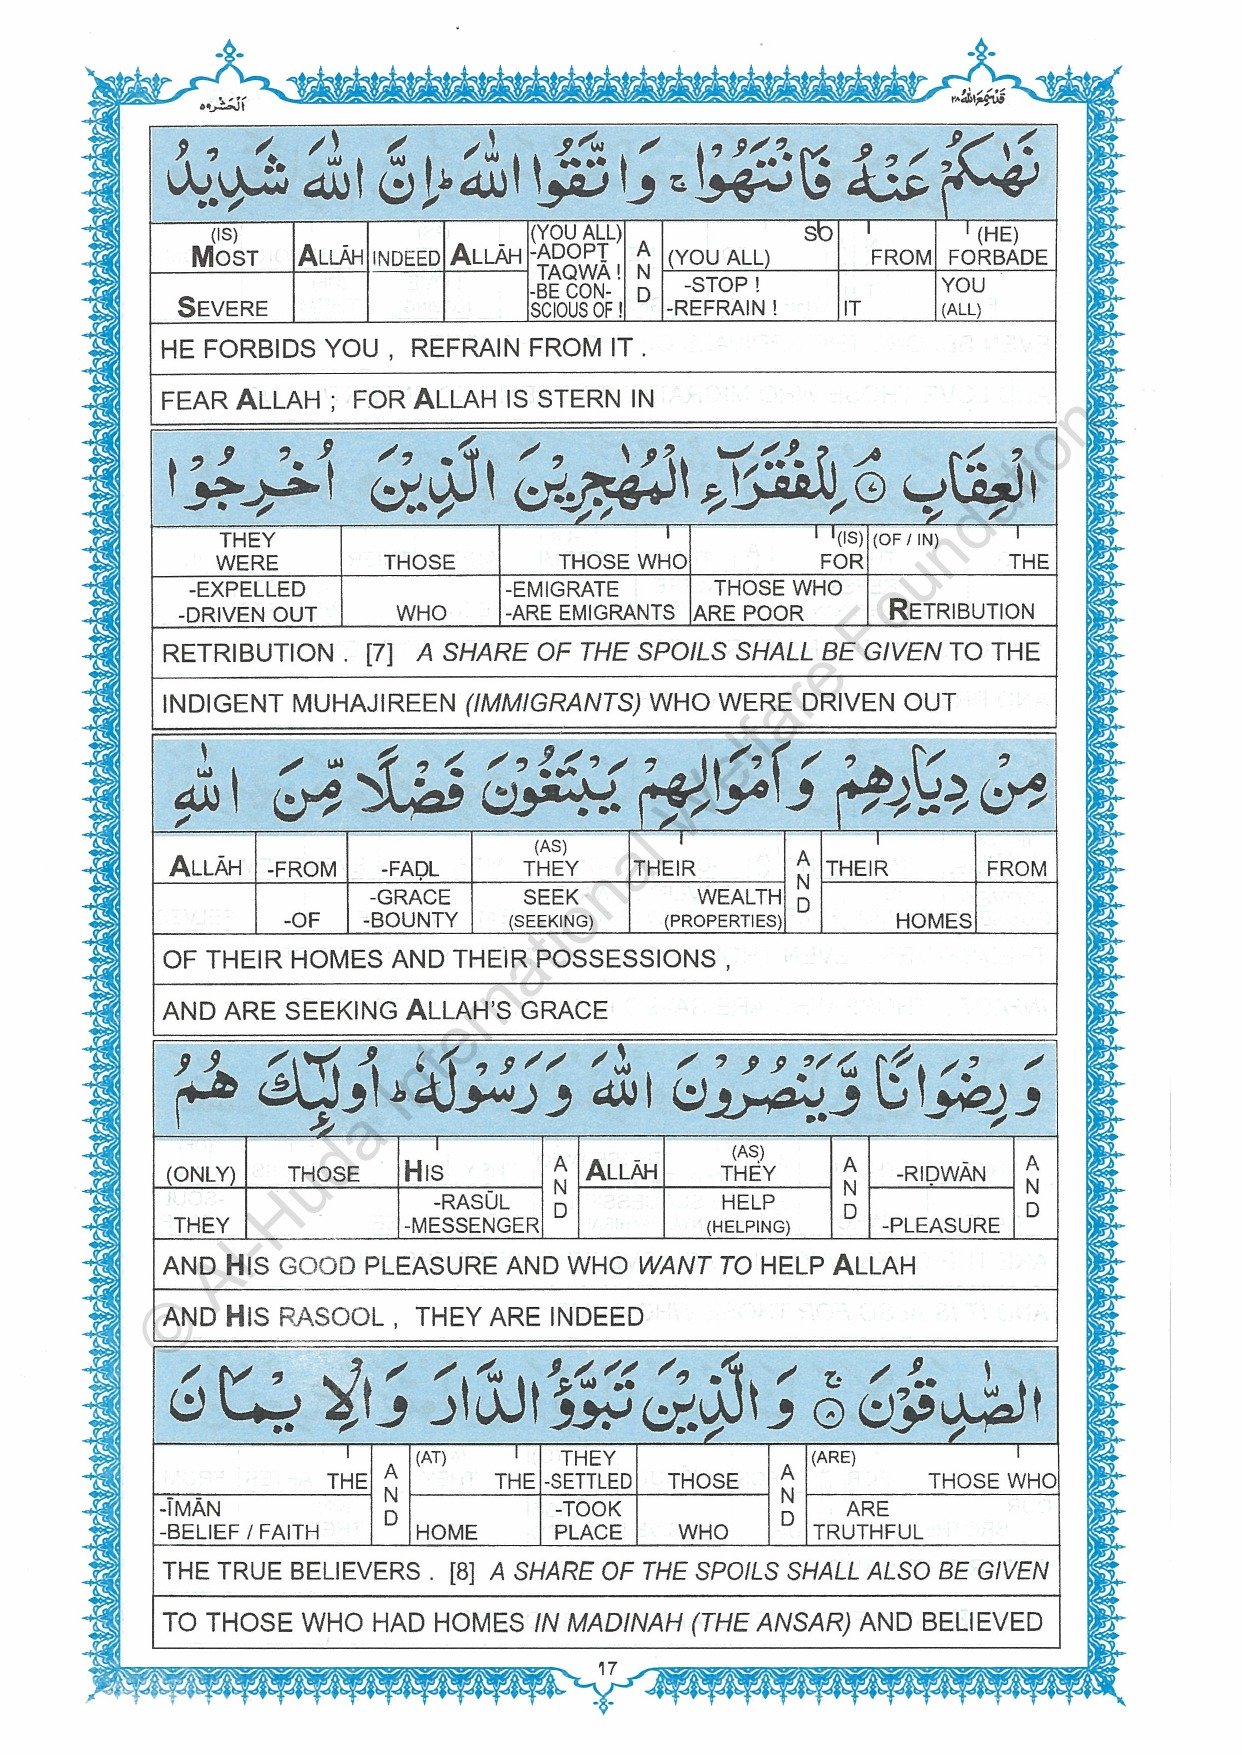 اَلْحَشْر ٥٩ قَدْ سَمِعَ اللّٰهُ ٢٨
نَهٰىكُمْ عَنْهُ فَانْتَهُوْا ۚ وَ اتَّقُوا اللّٰهَ ؕ اِنَّ اللّٰهَ شَدِيْدُ
(IS) (YOU ALL) SO (HE)
MOST ALLĀH INDEED ALLĀH -ADOPT AND (YOU ALL) FROM FORBADE
TAQWĀ ! -STOP ! YOU
SEVERE -BE CON- -REFRAIN ! IT (ALL)
SCIOUS OF !
HE FORBIDS YOU , REFRAIN FROM IT .
FEAR ALLAH ; FOR ALLAH IS STERN IN
الْعِقَابِ ۘ ﴿٧﴾ لِلْفُقَرَآءِ الْمُهٰجِرِيْنَ الَّذِيْنَ اُخْرِجُوْا
THEY (IS) (OF / IN)
WERE THOSE THOSE WHO FOR THE
-EXPELLED -EMIGRATE THOSE WHO
-DRIVEN OUT WHO -ARE EMIGRANTS ARE POOR RETRIBUTION
RETRIBUTION . [7] A SHARE OF THE SPOILS SHALL BE GIVEN TO THE
INDIGENT MUHAJIREEN (IMMIGRANTS) WHO WERE DRIVEN OUT
مِنْ دِيَارِهِمْ وَ اَمْوَالِهِمْ يَبْتَغُوْنَ فَضْلًا مِّنَ اللّٰهِ
(AS)
ALLĀH -FROM -FAḌL THEY THEIR AND THEIR FROM
-GRACE SEEK WEALTH
-OF -BOUNTY (SEEKING) (PROPERTIES) HOMES
OF THEIR HOMES AND THEIR POSSESSIONS ,
AND ARE SEEKING ALLAH'S GRACE
وَ رِضْوَانًا وَّ يَنْصُرُوْنَ اللّٰهَ وَ رَسُوْلَهٗ ؕ اُولٰٓئِكَ هُمُ
(AS)
(ONLY) THOSE HIS AND ALLĀH THEY AND -RIḌWĀN AND
-RASŪL HELP
THEY -MESSENGER (HELPING) -PLEASURE
AND HIS GOOD PLEASURE AND WHO WANT TO HELP ALLAH
AND HIS RASOOL , THEY ARE INDEED
الصّٰدِقُوْنَ ۚ ﴿٨﴾ وَ الَّذِيْنَ تَبَوَّؤُ الدَّارَ وَ الْاِيْمَانَ
(AT) THEY (ARE)
THE AND THE -SETTLED THOSE AND THOSE WHO
-ĪMĀN -TOOK ARE
-BELIEF / FAITH HOME PLACE WHO TRUTHFUL
THE TRUE BELIEVERS . [8] A SHARE OF THE SPOILS SHALL ALSO BE GIVEN
TO THOSE WHO HAD HOMES IN MADINAH (THE ANSAR) AND BELIEVED
17
© Al-Huda International Welfare Foundation